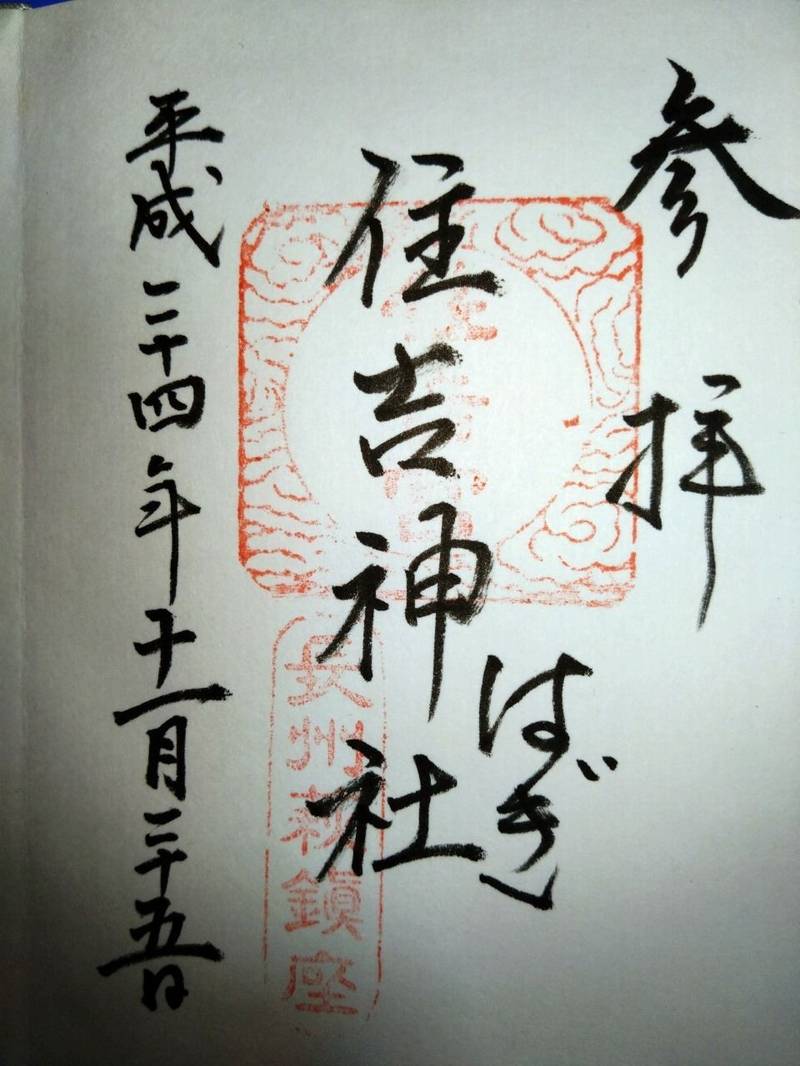 参拝
はぎ
住吉神社
長州萩鎮座
平成二十四年十一月二十五日